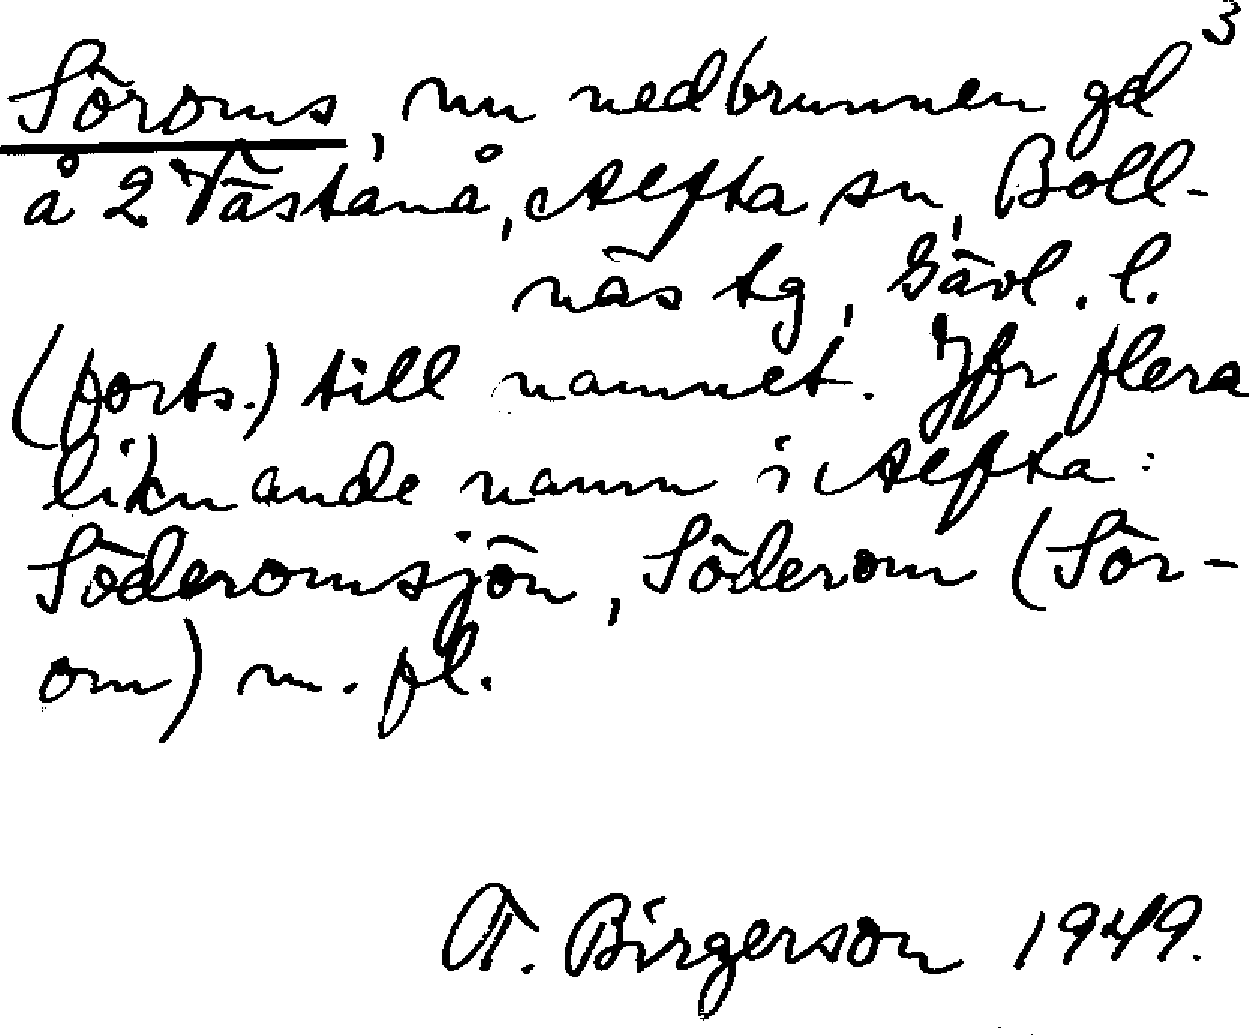 3
Söroms, nu nedbrunnen gd
å 2 Västanå, Alfta sn, Boll-
näs tg, Gävl. l.
(forts.) till namnet. Jfr flera
liknande namn i Alfta:
Söderomsjön, Söderom (Sör-
om) m. fl.
A. Birgerson 1949.